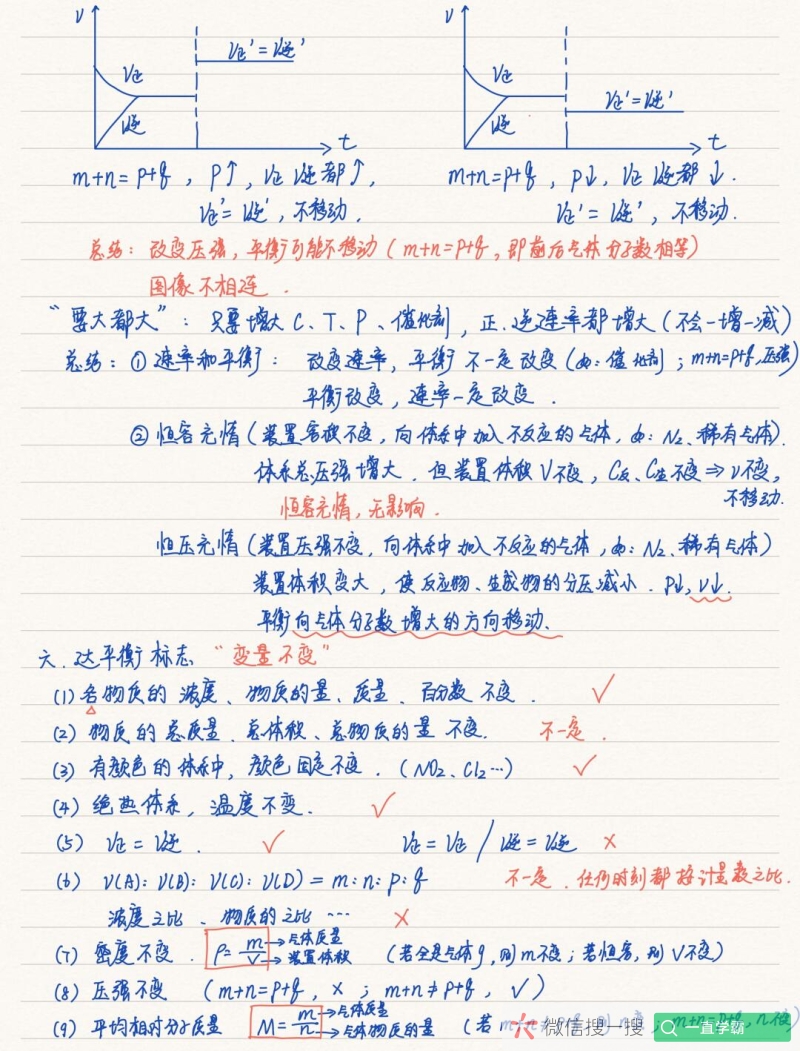 v v
V正'=V逆'
V正 V正
V正'=V逆'
V逆 V逆
t t
m+n=p+q，P↑，V正 V逆都↑，
V正'=V逆'，不移动.
m+n=p+q，P↓，V正 V逆都↓.
V正'=V逆'，不移动.
总结：改变压强，平衡可能不移动（m+n=p+q，即前后气体分子数相等）
图像不相连.
“要大都大”：只要增大 C、T、P、催化剂，正.逆速率都增大（不会一增一减）
总结：① 速率和平衡：改变速率，平衡不一定改变（如：催化剂；m+n=p+q，压强）
平衡改变，速率一定改变.
② 恒容充惰（装置容积不变，向体系中加入不反应的气体，如：N₂、稀有气体）.
体系总压强增大.但装置体积V不变，C反、C生不变⇒v不变，
不移动.
恒容充惰，无影响.
恒压充惰（装置压强不变，向体系中加入不反应的气体，如：N₂、稀有气体）
装置体积变大，使反应物、生成物的分压减小.P↓，v↓.
平衡向气体分子数增大的方向移动.
六.达平衡标志“变量不变”
(1) 各物质的浓度、物质的量、质量、百分数不变. ✓
(2) 物质的总质量、总体积、总物质的量不变. 不一定.
(3) 有颜色的体系中，颜色固定不变.（NO₂、Cl₂…） ✓
(4) 绝热体系，温度不变. ✓
(5) V正=V逆. ✓ V正=V正 / V逆=V逆 ×
(6) V(A)：V(B)：V(C)：V(D)=m：n：p：q 不一定.任何时刻都按计量数之比.
浓度之比、物质的之比… ×
(7) 密度不变. ρ=m/V →气体质量 →装置体积 （若全是气体g，则m不变；若恒容，则V不变）
(8) 压强不变 （m+n=p+q，×；m+n≠p+q，✓）
(9) 平均相对分子质量 M=m/n →气体质量 →气体物质的量 （若
微信搜一搜 一直学霸